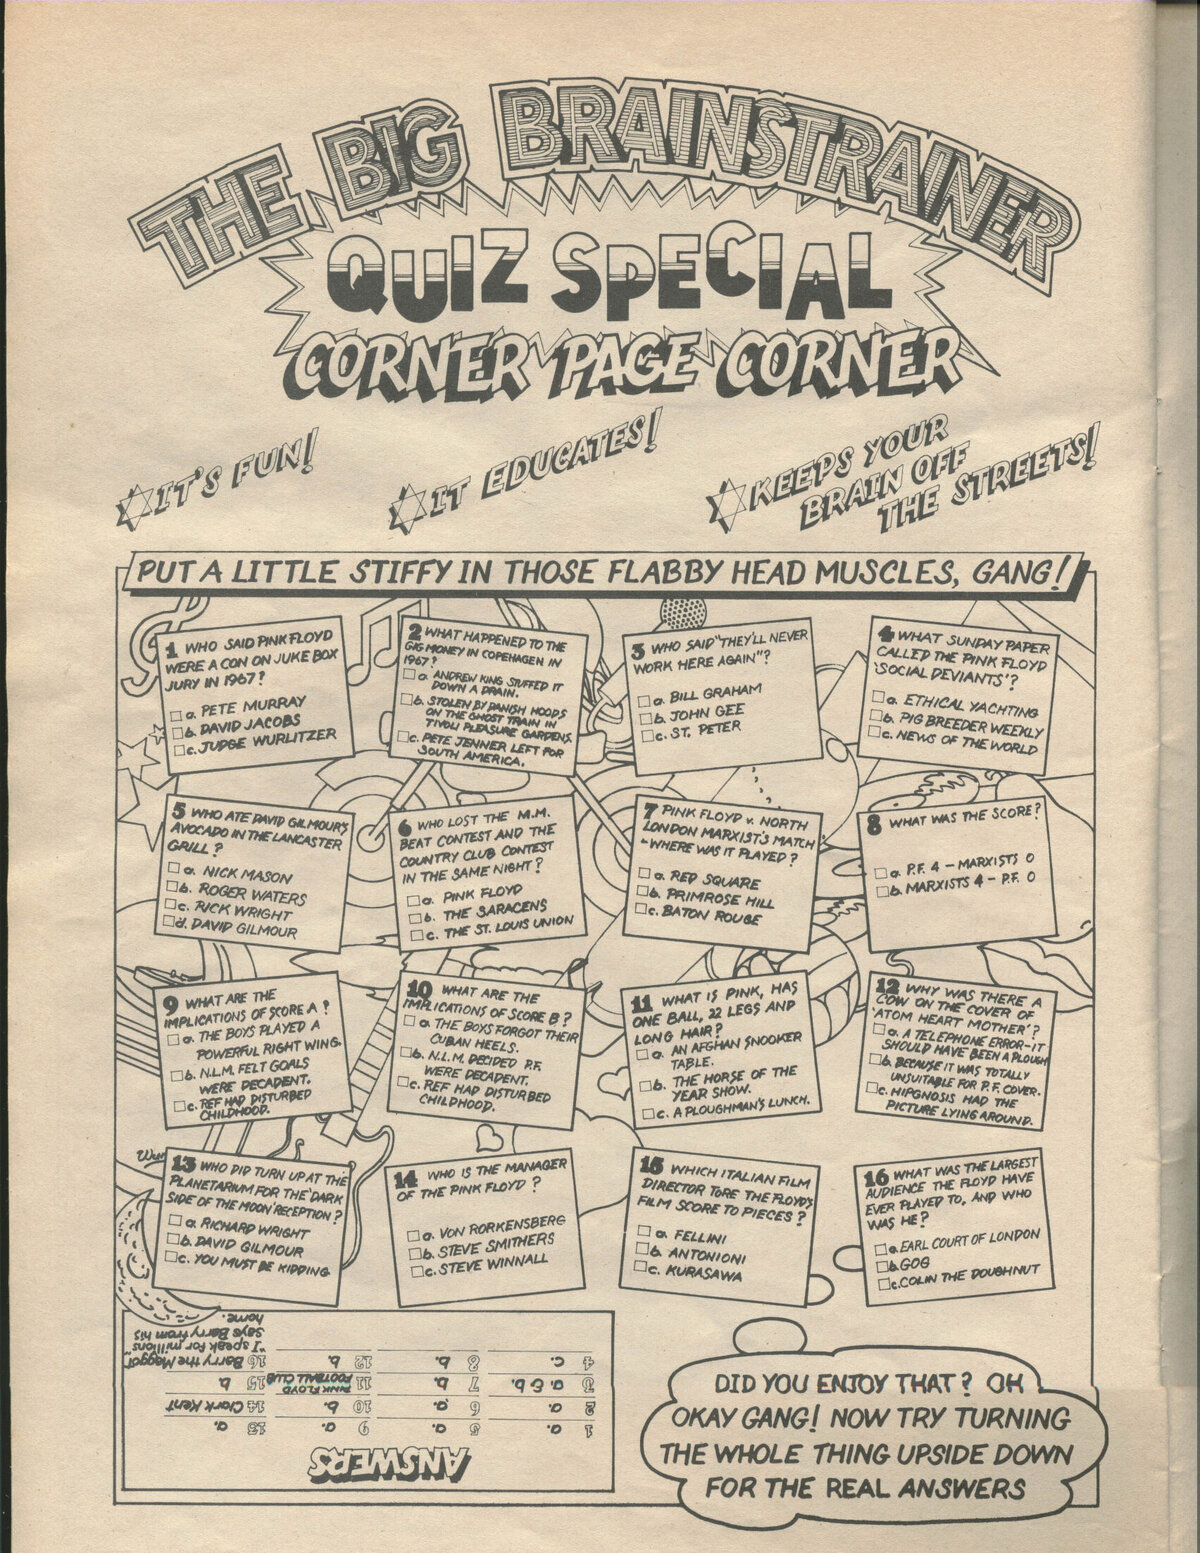 THE BIG BRAINSTRAINER
QUIZ SPECIAL
CORNER PAGE CORNER
IT'S FUN!
IT EDUCATES!
KEEPS YOUR
BRAIN OFF
THE STREETS!
PUT A LITTLE STIFFY IN THOSE FLABBY HEAD MUSCLES, GANG!
1 WHO SAID PINK FLOYD
WERE A CON ON JUKE BOX
JURY IN 1967?
a. PETE MURRAY
b. DAVID JACOBS
c. JUDGE WURLITZER
2 WHAT HAPPENED TO THE
GIG MONEY IN COPENHAGEN IN
1967?
a. ANDREW KING STUFFED IT
DOWN A DRAIN.
b. STOLEN BY DANISH HOODS
ON THE GHOST TRAIN IN
TIVOLI PLEASURE GARDENS.
c. PETE JENNER LEFT FOR
SOUTH AMERICA.
3 WHO SAID "THEY'LL NEVER
WORK HERE AGAIN"?
a. BILL GRAHAM
b. JOHN GEE
c. ST. PETER
4 WHAT SUNDAY PAPER
CALLED THE PINK FLOYD
'SOCIAL DEVIANTS'?
a. ETHICAL YACHTING
b. PIG BREEDER WEEKLY
c. NEWS OF THE WORLD
5 WHO ATE DAVID GILMOUR'S
AVOCADO IN THE LANCASTER
GRILL?
a. NICK MASON
b. ROGER WATERS
c. RICK WRIGHT
d. DAVID GILMOUR
6 WHO LOST THE M.M.
BEAT CONTEST AND THE
COUNTRY CLUB CONTEST
IN THE SAME NIGHT?
a. PINK FLOYD
b. THE SARACENS
c. THE ST. LOUIS UNION
7 PINK FLOYD v. NORTH
LONDON MARXIST'S MATCH
- WHERE WAS IT PLAYED?
a. RED SQUARE
b. PRIMROSE HILL
c. BATON ROUGE
8 WHAT WAS THE SCORE?
a. P.F. 4 - MARXISTS 0
b. MARXISTS 4 - P.F. 0
9 WHAT ARE THE
IMPLICATIONS OF SCORE A?
a. THE BOYS PLAYED A
POWERFUL RIGHT WING.
b. N.L.M. FELT GOALS
WERE DECADENT.
c. REF HAD DISTURBED
CHILDHOOD.
10 WHAT ARE THE
IMPLICATIONS OF SCORE B?
a. THE BOYS FORGOT THEIR
CUBAN HEELS.
b. N.L.M. DECIDED P.F.
WERE DECADENT.
c. REF HAD DISTURBED
CHILDHOOD.
11 WHAT IS PINK, HAS
ONE BALL, 22 LEGS AND
LONG HAIR?
a. AN AFGHAN SNOOKER
TABLE.
b. THE HORSE OF THE
YEAR SHOW.
c. A PLOUGHMAN'S LUNCH.
12 WHY WAS THERE A
COW ON THE COVER OF
'ATOM HEART MOTHER'?
a. A TELEPHONE ERROR-IT
SHOULD HAVE BEEN A PLOUGH
b. BECAUSE IT WAS TOTALLY
UNSUITABLE FOR P.F. COVER.
c. HIPGNOSIS HAD THE
PICTURE LYING AROUND.
13 WHO DID TURN UP AT THE
PLANETARIUM FOR THE 'DARK
SIDE OF THE MOON' RECEPTION?
a. RICHARD WRIGHT
b. DAVID GILMOUR
c. YOU MUST BE KIDDING
14 WHO IS THE MANAGER
OF THE PINK FLOYD?
a. VON RORKENSBERG
b. STEVE SMITHERS
c. STEVE WINNALL
15 WHICH ITALIAN FILM
DIRECTOR TORE THE FLOYD'S
FILM SCORE TO PIECES?
a. FELLINI
b. ANTONIONI
c. KURASAWA
16 WHAT WAS THE LARGEST
AUDIENCE THE FLOYD HAVE
EVER PLAYED TO, AND WHO
WAS HE?
a. EARL COURT OF LONDON
b. GOG
c. COLIN THE DOUGHNUT
ANSWERS
1 a.
2 a.
3 a. & b.
4 c.
5 a.
6 a.
7 b.
8 b.
9 a.
10 b.
11 PINK FLOYD
FOOTBALL CLUB
12 b.
13 a.
14 Clark Kent
15 b.
16 Barry the Maggot
"I speak for millions"
says Barry from his
home.
DID YOU ENJOY THAT? OH
OKAY GANG! NOW TRY TURNING
THE WHOLE THING UPSIDE DOWN
FOR THE REAL ANSWERS